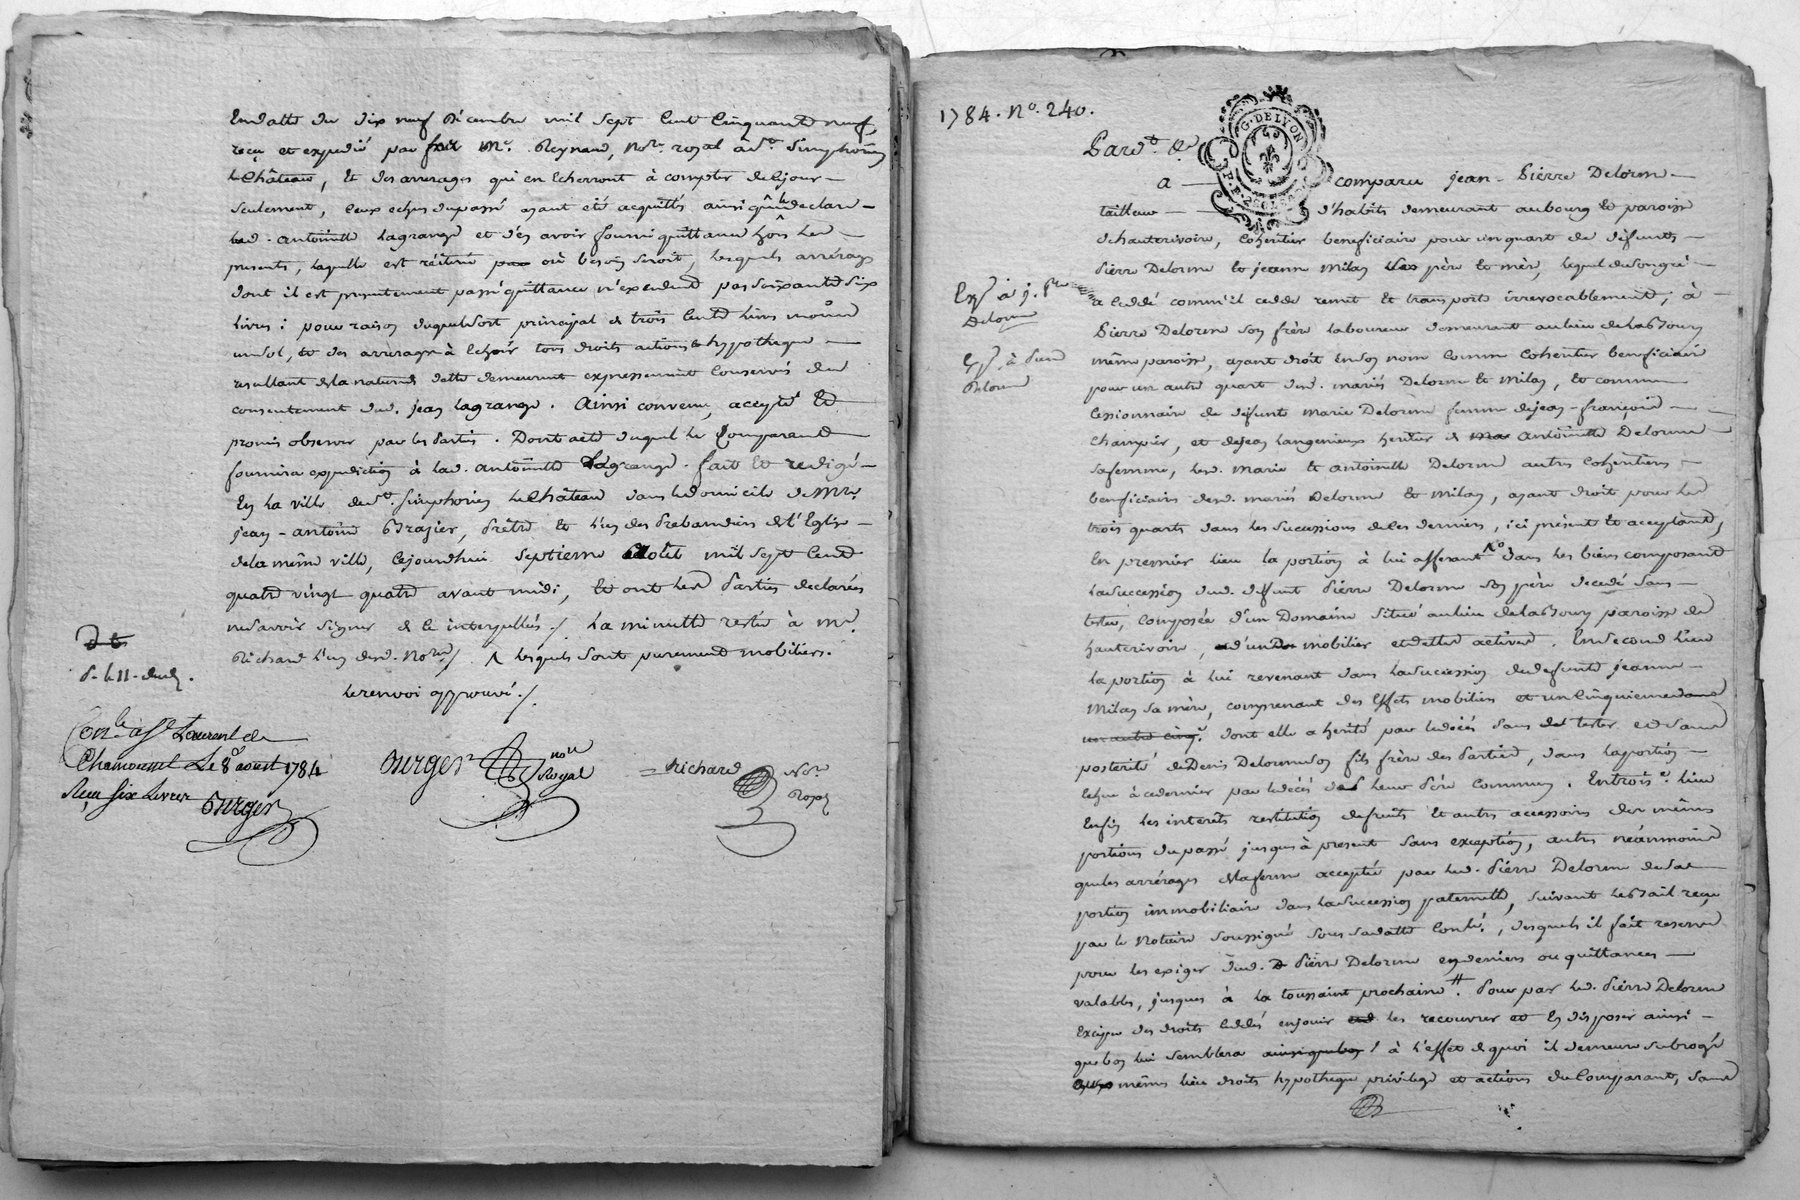 En datte du dix neuf Décembre mil sept Cent Cinquante neuf,
reçu et expedié par Mr. Reynaud, Nore. royal à St. Simphorien
le Château, Et des arrerages qui en Echerront à compter de ce jour
seulement, Ceux echus du passé ayant été acquittés ainsi que le declare
lad. antoinette Lagrange et d'en avoir fourni quittance hors les
presents, laquelle est réiterée où besoin seroit, lesquels arrérages
dont il est presentement passé quittance n'excedent pas soixante six
livres : pour raison duquel sort principal de trois Cents livres moins
un sol, et des arrerages à Echoir tous droits actions & hypotheque
resultant de la nature de dette demeurent expressement Conservés du
consentement dud. jean Lagrange. Ainsi convenu, accepté Et
promis observer par les Parties. Dont acte duquel le Comparant
fournira expedition à lad. antoinette Lagrange. fait Et redigé
En la ville de St. Simphorien le Château dans le domicile de Mre.
jean-antoine Brazier, Prêtre Et l'un des Prebandiers de l'Eglise
de la même ville, Cejourdhui septieme Août mil sept Cent
quatre vingt quatre avant midi, Et ont les Parties declarées
ne savoir signer de ce interpellés./. La minutte restée à Me.
Richard l'un desd. Nores./. ^ lesquels sont purement mobiliers.
le renvoi approuvé./.
d. le 11. dud.
Conlé. à St Laurent de
Chamousset Le 8 aoust 1784
Reçu six Livres
Burger
Burger Nore Royal
Richard Nore Royal
1784. No. 240.
G. DE LYON
Pardt. &a
a comparu jean-Pierre Delorme
tailleur d'habits demeurant au bourg Et paroisse
d'hauterivoire, Cohéritier beneficiaire pour un quart de défunts
Pierre Delorme Et jeanne Milan père Et mère, lequel de son gré
a Cedé comm'il cedde remet Et transporte irrevocablement, à
Pierre Delorme son frère laboureur demeurant au lieu de
même paroisse, ayant droit En son nom Comme Cohéritier beneficiaire
pour un autre quart desd. mariés Delorme Et Milan, Et comme
Cessionnaire de défunte Marie Delorme femme de jean-françois
Champier, et de jean Langenieux heritier de antoinette Delorme
sa femme, lesd. Marie Et antoinette Delorme autres Cohéritieres
beneficiaires desd. mariés Delorme Et Milan, ayant droit pour les
trois quarts dans les successions de ces derniers, ici présent Et acceptant,
En premier lieu la portion à lui afferante dans les biens composant
la succession dud. deffunt Pierre Delorme son père decedé sans
tester, Composée d'un Domaine situé au lieu de paroisse de
hauterivoire, d'un mobilier et dettes actives. En second lieu
la portion à lui revenant dans la succession de deffunte jeanne
Milan sa mère, comprenant des Effets mobiliers et un Cinquieme dans
dont elle a herité par le décès sans tester et sans
posterité de Denis Delorme son fils frère des Parties, dans la portion
Echue à ce dernier par le décès de leur Père Commun. En trois.e lieu
Enfin les interêts restitution de fruits Et autres accessoires des mêmes
portions du passé jusques à present sans exception, autres néanmoins
que les arrérages de la ferme acceptée par led. Pierre Delorme de sa
portion immobiliaire dans la succession paternelle, suivant le Bail reçu
par le Notaire soussigné sous sa datte Conlé., desquels il fait reserve
pour les exiger dud. Pierre Delorme en deniers ou quittances
valables, jusques à la toussaint prochaine. Pour par led. Pierre Delorme
Exciper des droits Ceddés en jouir les recouvrer et En disposer ainsi
que bon lui semblera à l'effet de quoi il demeure subrogé
aux mêmes lieu droits hypotheque privilege et actions du Comparant, sans
Expé à j. Pre
Delorme
Expé. à Pierre
Delorme